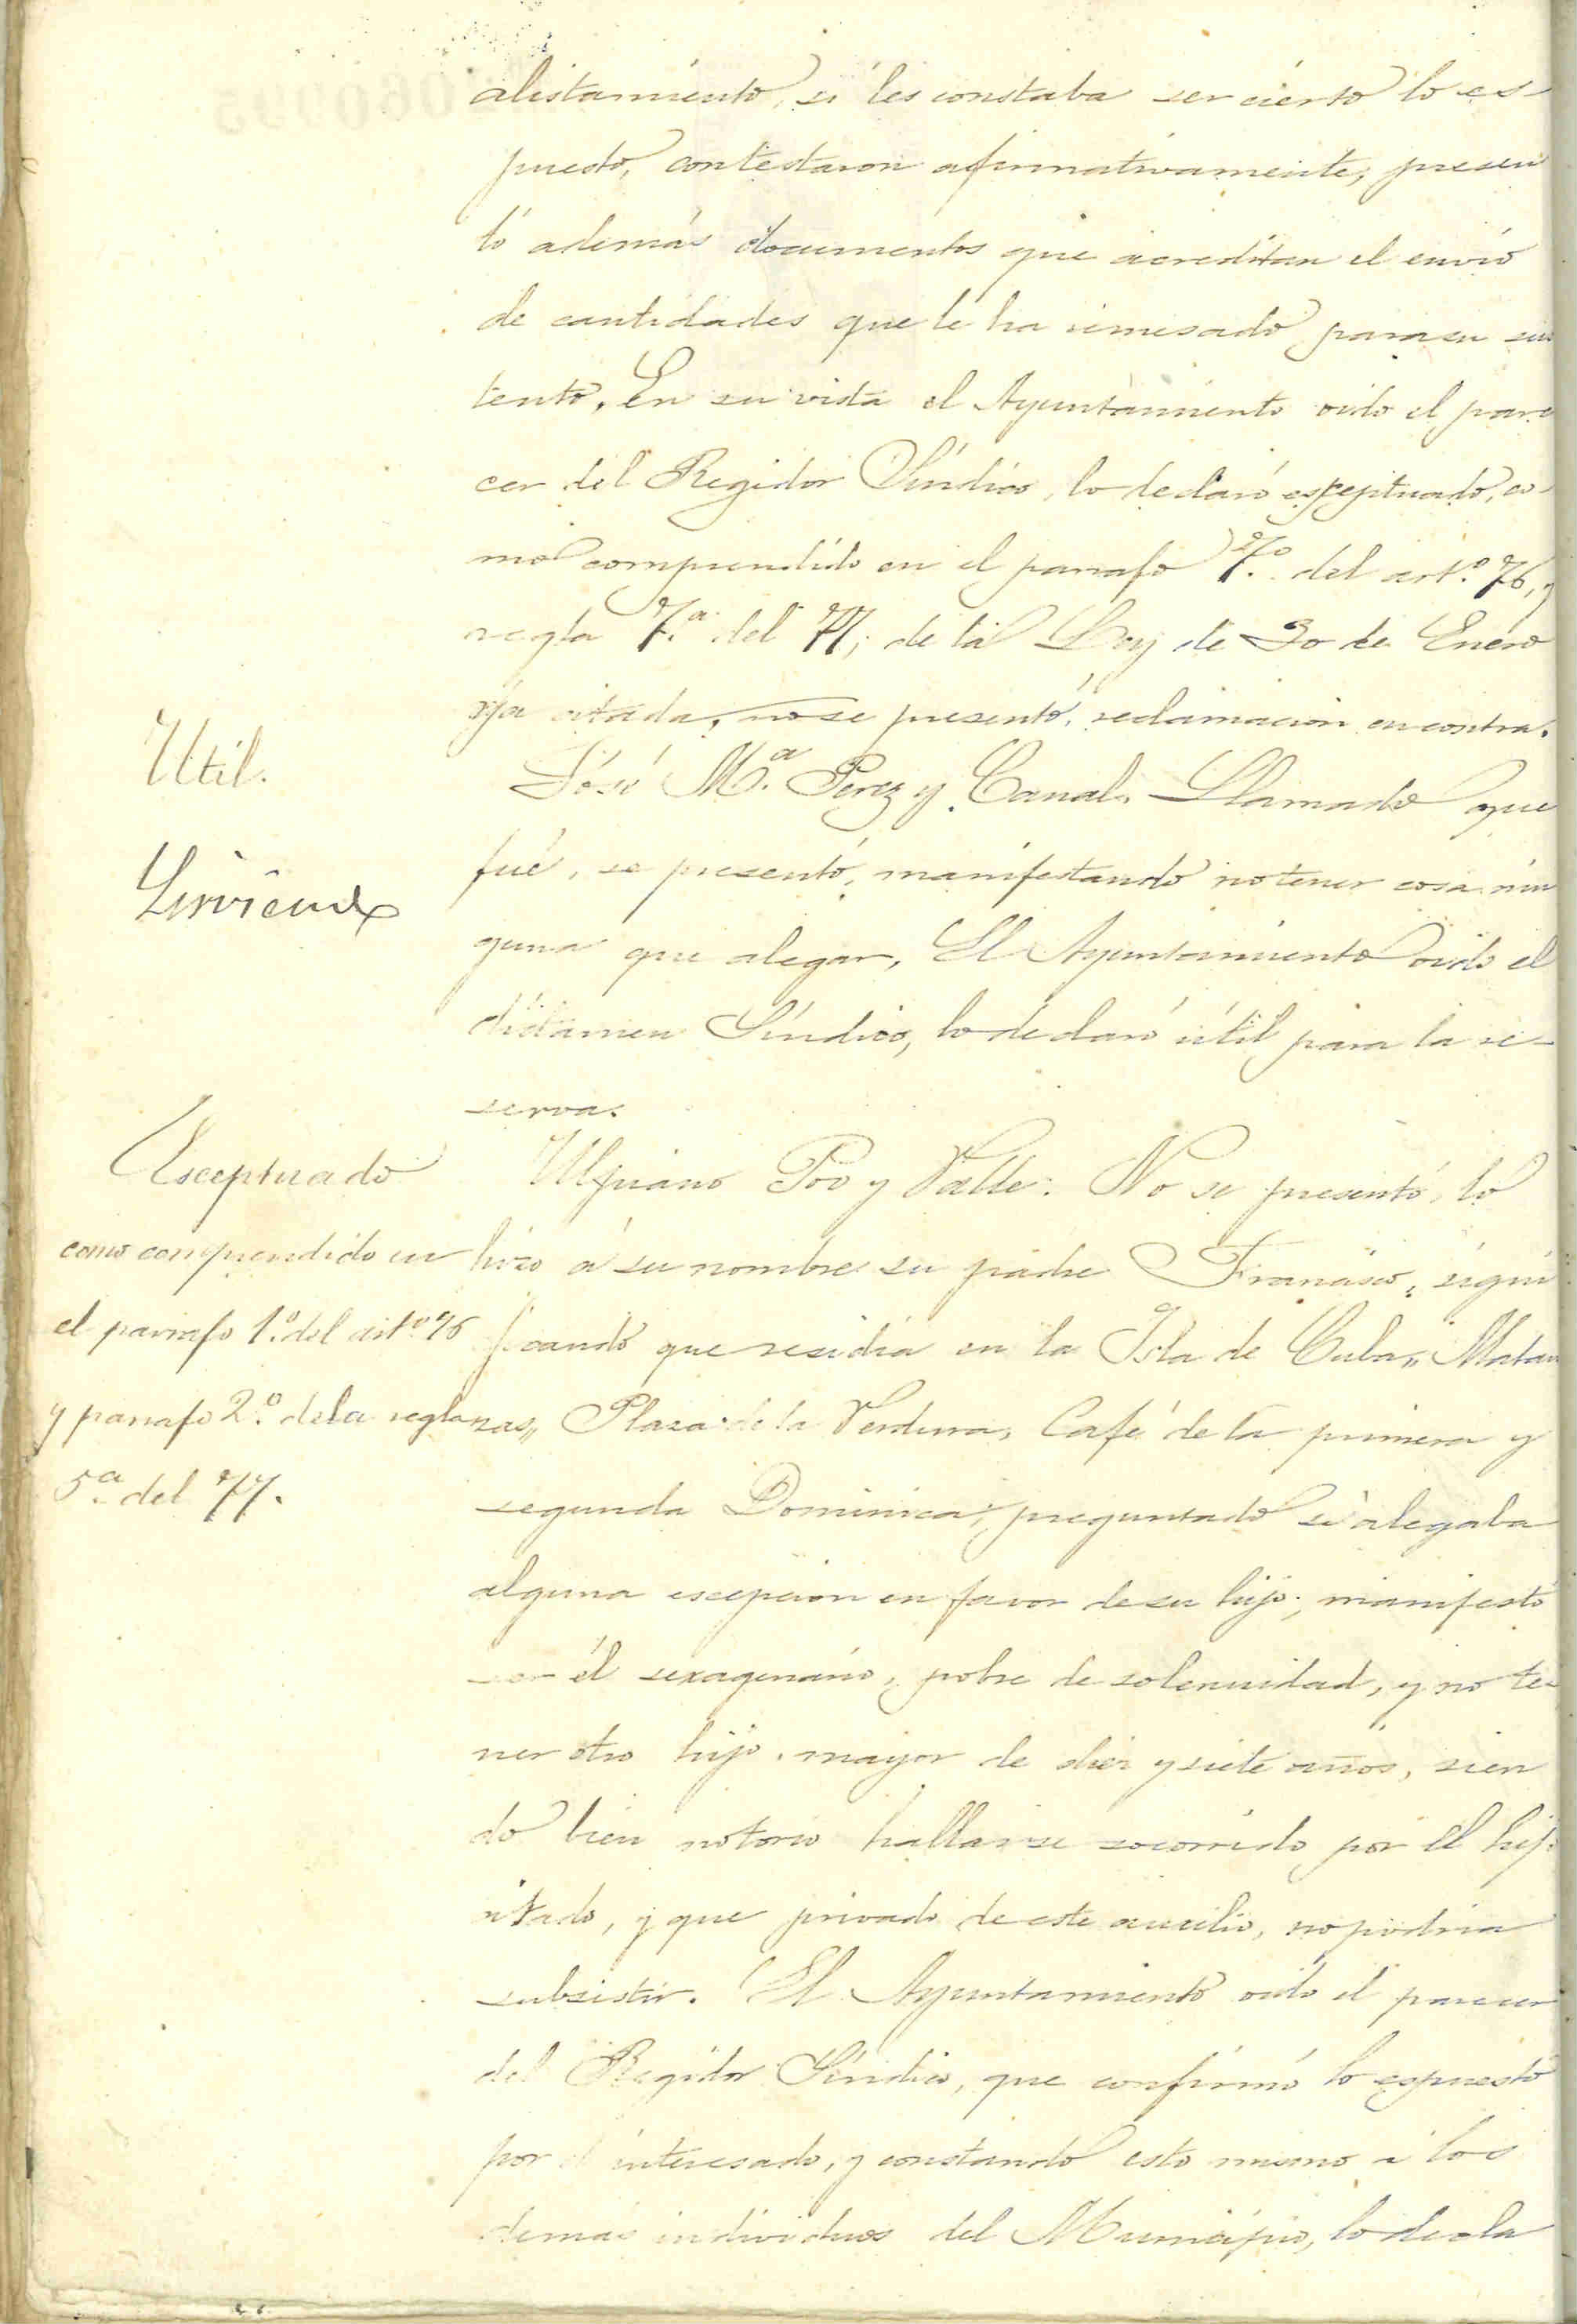 alistamiento, si les constaba ser cierto lo es-
puesto, contestaron afirmativamente, presen
tó además documentos que acreditan el envio
de cantidades que le ha remesado para su sus
tento. En su vista el Ayuntamiento oido el pare
cer del Regidor Síndico, lo declaró espeptuado, co-
mo comprendido en el parrafo 7.º del art.º 76, y
regla 7.ª del 77, de la Ley de 30 de Enero
ya citada, no se presentó, reclamacion en contra.
Util.
José M.ª Perez y Canal. Llamado que
fué, se presentó, manifestando no tener cosa nin
guna que alegar, El Ayuntamiento oido el
dictamen Síndico, lo declaró útil para la re-
serva.
Esceptuado
como comprendido en
el parrafo 1.º del art.º 76
y parrafo 2.º de la regla
5.ª del 77.
Ulpiano Poo y Valle. No se presentó, lo
hizo á su nombre su padre Francisco, signi
ficando que residia en la Isla de Cuba,, Matan
zas,, Plaza de la Verdura, Café de la primera y
segunda Dominica; preguntado si alegaba
alguna escepcion en favor de su hijo; manifestó
ser él sexagenario, pobre de solemnidad, y no te-
ner otro hijo mayor de diez y siete años, sien
do bien notorio hallarse socorrido por el hijo
citado, y que privado de este aucilio, no podria
subsistir. El Ayuntamiento oido el parecer
del Regidor Síndico, que confirmó lo espuesto
por el interesado, y constando esto mismo á los
demas individuos del Municipio, lo decla